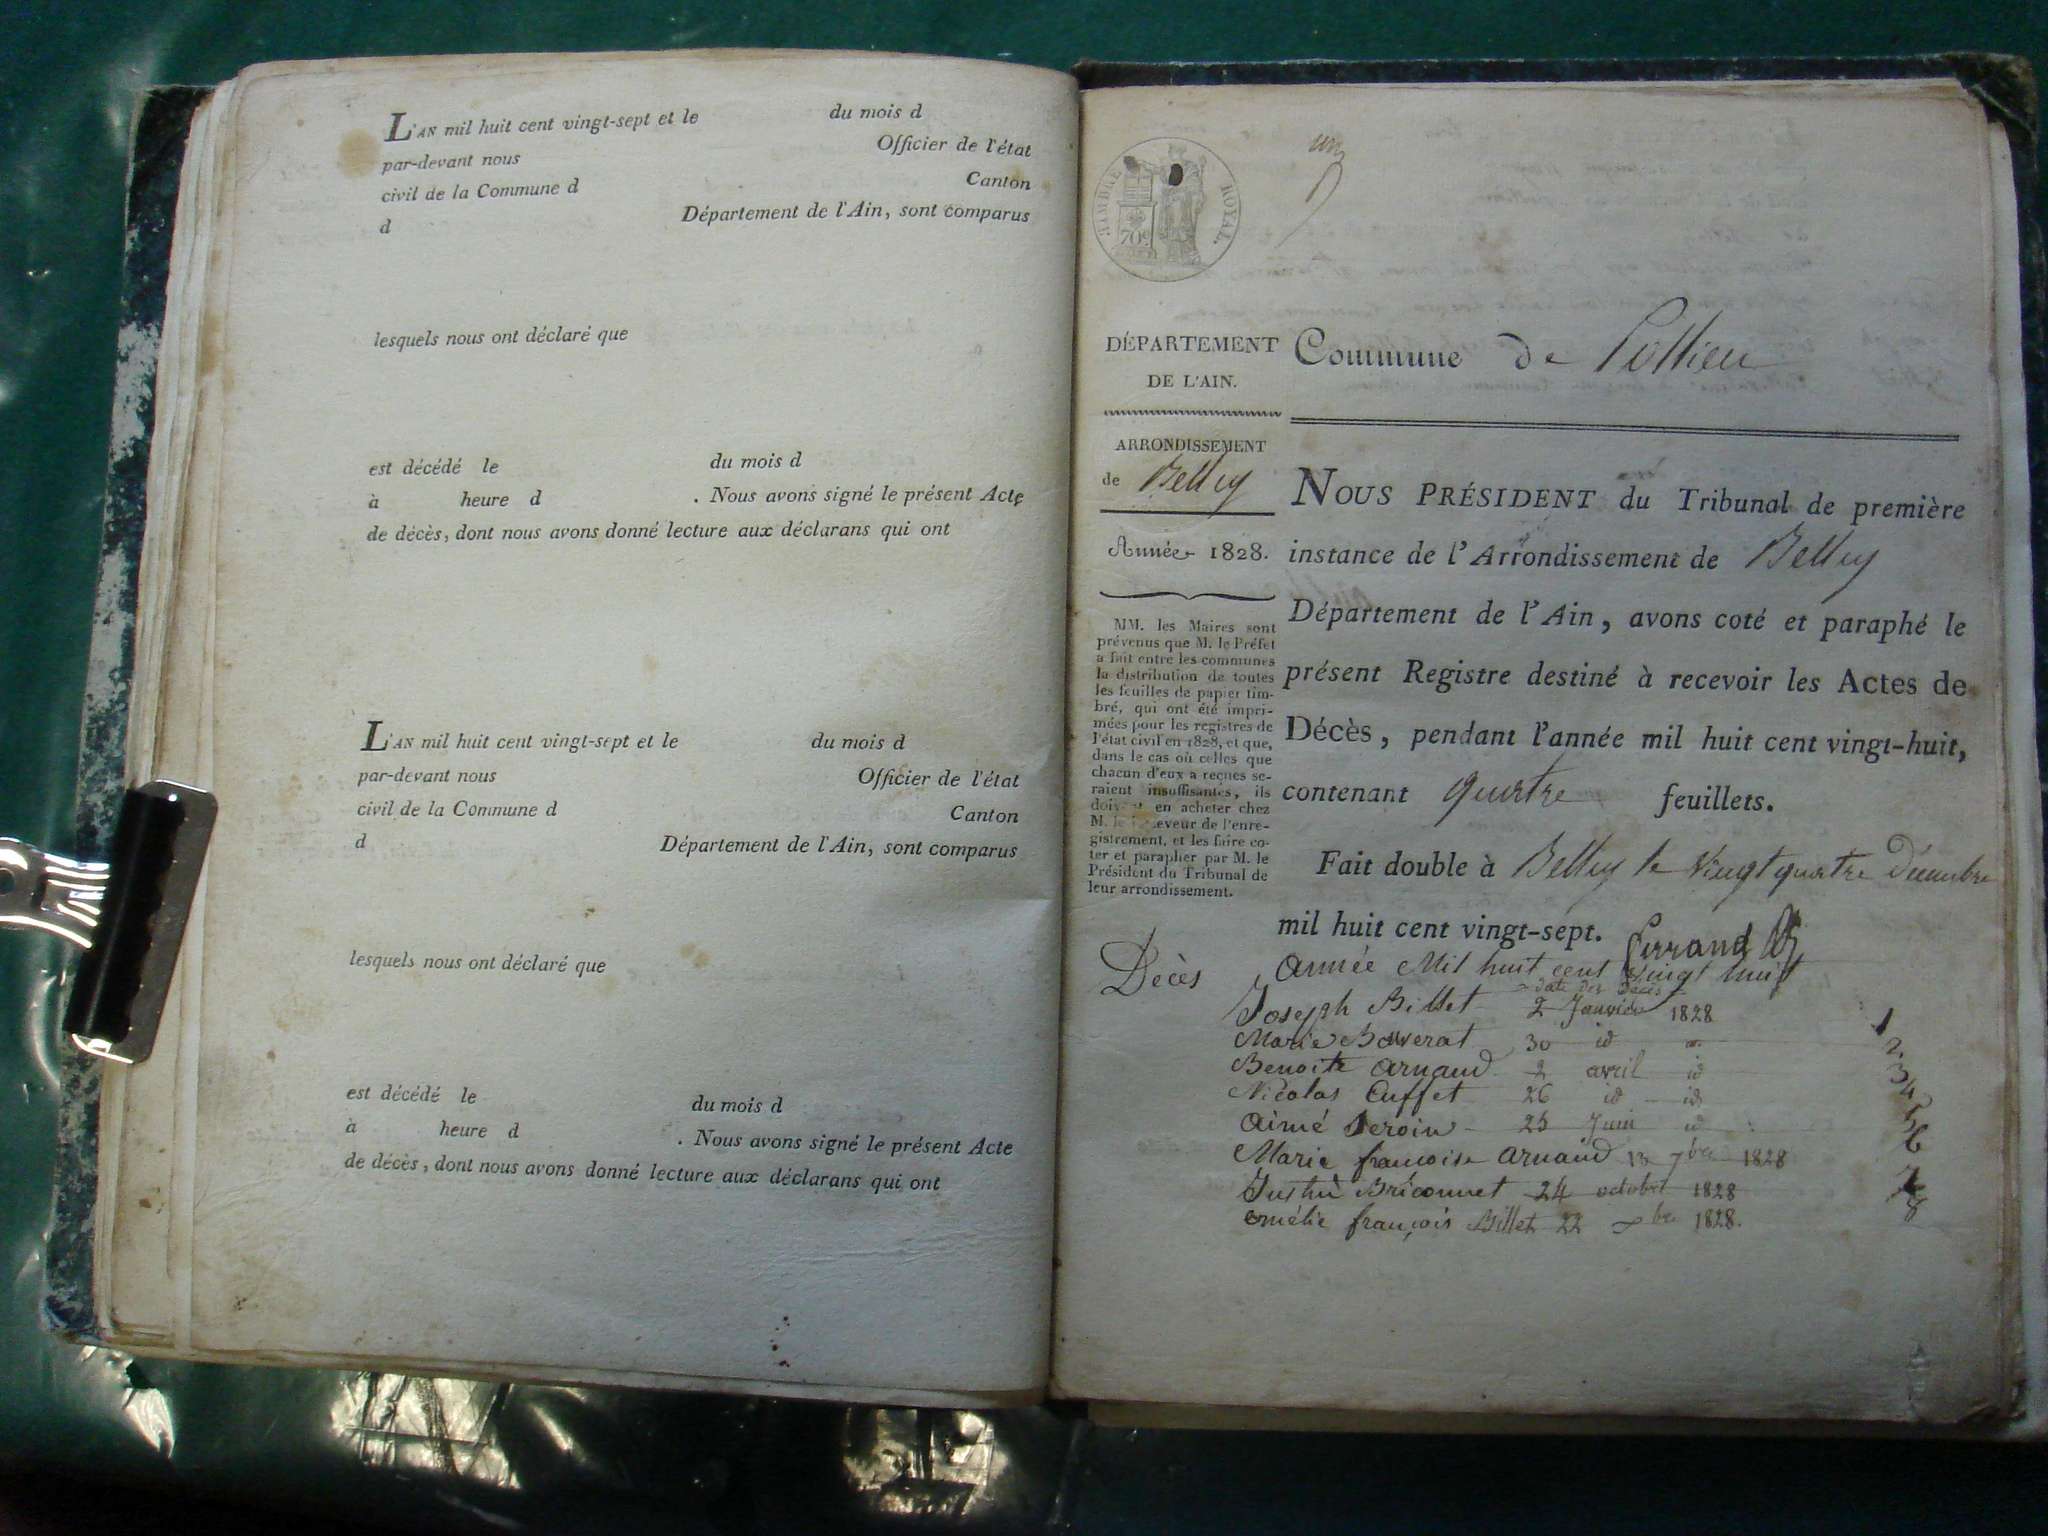 L'AN mil huit cent vingt-sept et le du mois d
par-devant nous Officier de l'état
civil de la Commune d Canton
d Département de l'Ain, sont comparus
lesquels nous ont déclaré que
est décédé le du mois d
à heure d . Nous avons signé le présent Acte
de décès, dont nous avons donné lecture aux déclarans qui ont
L'AN mil huit cent vingt-sept et le du mois d
par-devant nous Officier de l'état
civil de la Commune d Canton
d Département de l'Ain, sont comparus
lesquels nous ont déclaré que
est décédé le du mois d
à heure d . Nous avons signé le présent Acte
de décès, dont nous avons donné lecture aux déclarans qui ont
TIMBRE ROYAL.
70c
un
DÉPARTEMENT
DE L'AIN.
ARRONDISSEMENT
de Belley
Année 1828.
MM. les Maires sont
prévenus que M. le Préfet
a fait entre les communes
la distribution de toutes
les feuilles de papier tim-
bré, qui ont été impri-
mées pour les registres de
l'état civil en 1828, et que,
dans le cas où celles que
chacun d'eux a reçues se-
raient insuffisantes, ils
en acheter chez
M. le
gistrement, et les faire co-
ter et parapher par M. le
Président du Tribunal de
leur arrondissement.
Commune de Pollieu
NOUS PRÉSIDENT du Tribunal de première
instance de l'Arrondissement de Belley
Département de l'Ain, avons coté et paraphé le
présent Registre destiné à recevoir les Actes de
Décès, pendant l'année mil huit cent vingt-huit,
contenant quatre feuillets.
Fait double à Belley le Vingt quatre Décembre
mil huit cent vingt-sept.
Décès année Mil huit cent vingt huit
date des Décès
Joseph Billet 2 Janvier 1828 1
Marie 30 id 2
Benoite Arnaud 2 avril id 3
Nicolas Cuffet 26 id id 4
aimé 25 Juin id 5
Marie françoise Arnaud 13 7bre 1828 6
Briconnet 24 octobre 1828 7
emélie françois Billet 22 bre 1828. 8